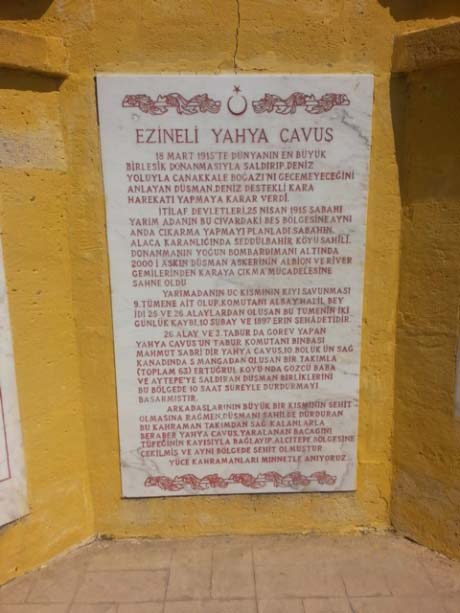 EZINELI YAHYA CAVUS
18 MART 1915'TE DUNYANIN EN BUYUK
BIRLESIK DONANMASIYLA SALDIRIP, DENIZ
YOLUYLA CANAKKALE BOGAZI'NI GECEMEYECEĞINI
ANLAYAN DUSMAN, DENIZ DESTEKLI KARA
HAREKATI YAPMAYA KARAR VERDI.
ITILAF DEVLETLERI, 25 NISAN 1915 SABAHI
YARIM ADANIN BU CIVARDAKI BES BOLGESINE AYNI
ANDA CIKARMA YAPMAYI PLANLADI. SABAHIN,
ALACA KARANLIĞINDA SEDDULBAHIR KOYU SAHILI,
DONANMANIN YOĞUN BOMBARDIMANI ALTINDA
2000 I ASKIN DUSMAN ASKERININ ALBION VE RIVER
GEMILERINDEN KARAYA CIKMA MUCADELESINE
SAHNE OLDU
YARIMADANIN UC KISMININ KIYI SAVUNMASI
9. TUMENE AIT OLUP, KOMUTANI ALBAY HALIL BEY
IDI 25 VE 26. ALAYLARDAN OLUSAN BU TUMENIN IKI
GUNLUK KAYBI, 10 SUBAY VE 1897 ERIN SEHADETIDIR.
26. ALAY VE 3. TABUR DA GOREV YAPAN
YAHYA CAVUS'UN TABUR KOMUTANI BINBASI
MAHMUT SABRI DIR YAHYA CAVUS, 10. BOLUK UN SAĞ
KANADINDA 5 MANGADAN OLUSAN BIR TAKIMLA
(TOPLAM 63) ERTUĞRUL KOYU NDA GOZCU BABA
VE AYTEPE'YE SALDIRAN DUSMAN BIRLIKLERINI
BU BOLGEDE 10 SAAT SUREYLE DURDURMAYI
BASARMISTIR.
ARKADASLARININ BUYUK BIR KISMININ SEHIT
OLMASINA RAĞMEN, DUSMANI SAHILDE DURDURAN
BU KAHRAMAN TAKIMDAN SAĞ KALANLARLA
BERABER YAHYA CAVUS, YARALANAN BACAĞINI
TUFEĞININ KAYISIYLA BAĞLAYIP, ALCITEPE BOLGESINE
CEKILMIS VE AYNI BOLGEDE SEHIT OLMUSTUR.
YUCE KAHRAMANLARI MINNETLE ANIYORUZ.